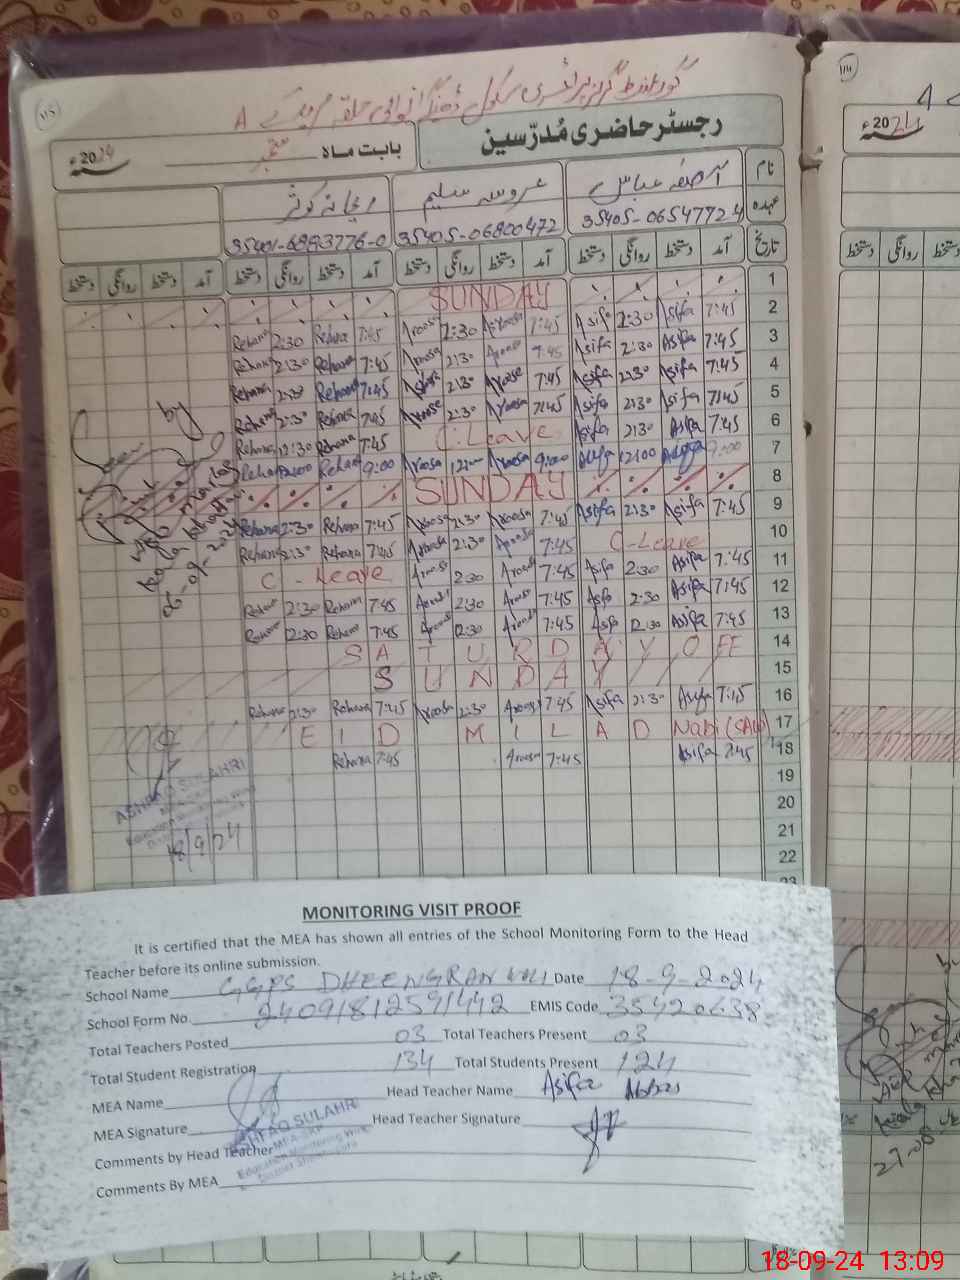 رجسٹر حاضری مُدرّسین
بابت ماہ ستمبر 2024ء
نام آصفہ عباس عروسہ سلیم ریحانہ کوثر
عہدہ 35405-0654772-4 35405-06800472 35401-6893776-0
تاریخ آمد دستخط روانگی دستخط آمد دستخط روانگی دستخط آمد دستخط روانگی دستخط آمد دستخط روانگی دستخط
SUNDAY 1
Rehana 2:30 Rehana 7:45 Aroosa 2:30 Aroosa 7:45 Asifa 2:30 Asifa 7:45 2
Rehana 2:30 Rehana 7:45 Aroosa 2:30 Aroosa 7:45 Asifa 2:30 Asifa 7:45 3
Rehana 2:30 Rehana 7:45 Aroosa 2:30 Aroosa 7:45 Asifa 2:30 Asifa 7:45 4
Rehana 2:30 Rehana 7:45 Aroosa 2:30 Aroosa 7:45 Asifa 2:30 Asifa 7:45 5
Rehana 12:30 Rehana 7:45 C-Leave Asifa 2:30 Asifa 7:45 6
Rehana 12:00 Rehana 9:00 Aroosa 12:00 Aroosa 9:00 Asifa 12:00 Asifa 9:00 7
SUNDAY 8
Rehana 2:30 Rehana 7:45 Aroosa 2:30 Aroosa 7:45 Asifa 2:30 Asifa 7:45 9
Rehana 2:30 Rehana 7:45 Aroosa 2:30 Aroosa 7:45 C-Leave 10
C-Leave Aroosa 2:30 Aroosa 7:45 Asifa 2:30 Asifa 7:45 11
Rehana 2:30 Rehana 7:45 Aroosa 2:30 Aroosa 7:45 Asifa 2:30 Asifa 7:45 12
Rehana 12:30 Rehana 7:45 Aroosa 12:30 Aroosa 7:45 Asifa 12:30 Asifa 7:45 13
SATURDAY OFF 14
SUNDAY 15
Rehana 2:30 Rehana 7:45 Aroosa 2:30 Aroosa 7:45 Asifa 2:30 Asifa 7:45 16
EID MILAD Nabi (SAW) 17
Rehana 7:45 Aroosa 7:45 Asifa 7:45 18
19
20
21
22
23
ASHFAQ SULAHRI
18/9/24
MONITORING VISIT PROOF
It is certified that the MEA has shown all entries of the School Monitoring Form to the Head
Teacher before its online submission.
School Name GGPS DHEENGRANWALI Date 18-9-2024
School Form No. 24091812591442 EMIS Code 35420638
Total Teachers Posted 03 Total Teachers Present 03
Total Student Registration 134 Total Students Present 124
MEA Name Head Teacher Name Asifa Abbas
MEA Signature Head Teacher Signature
ASHFAQ SULAHRI
Comments by Head Teacher
Education Monitoring Wing
Comments By MEA
114
2024ء
روانگی دستخط
18-09-24 13:09